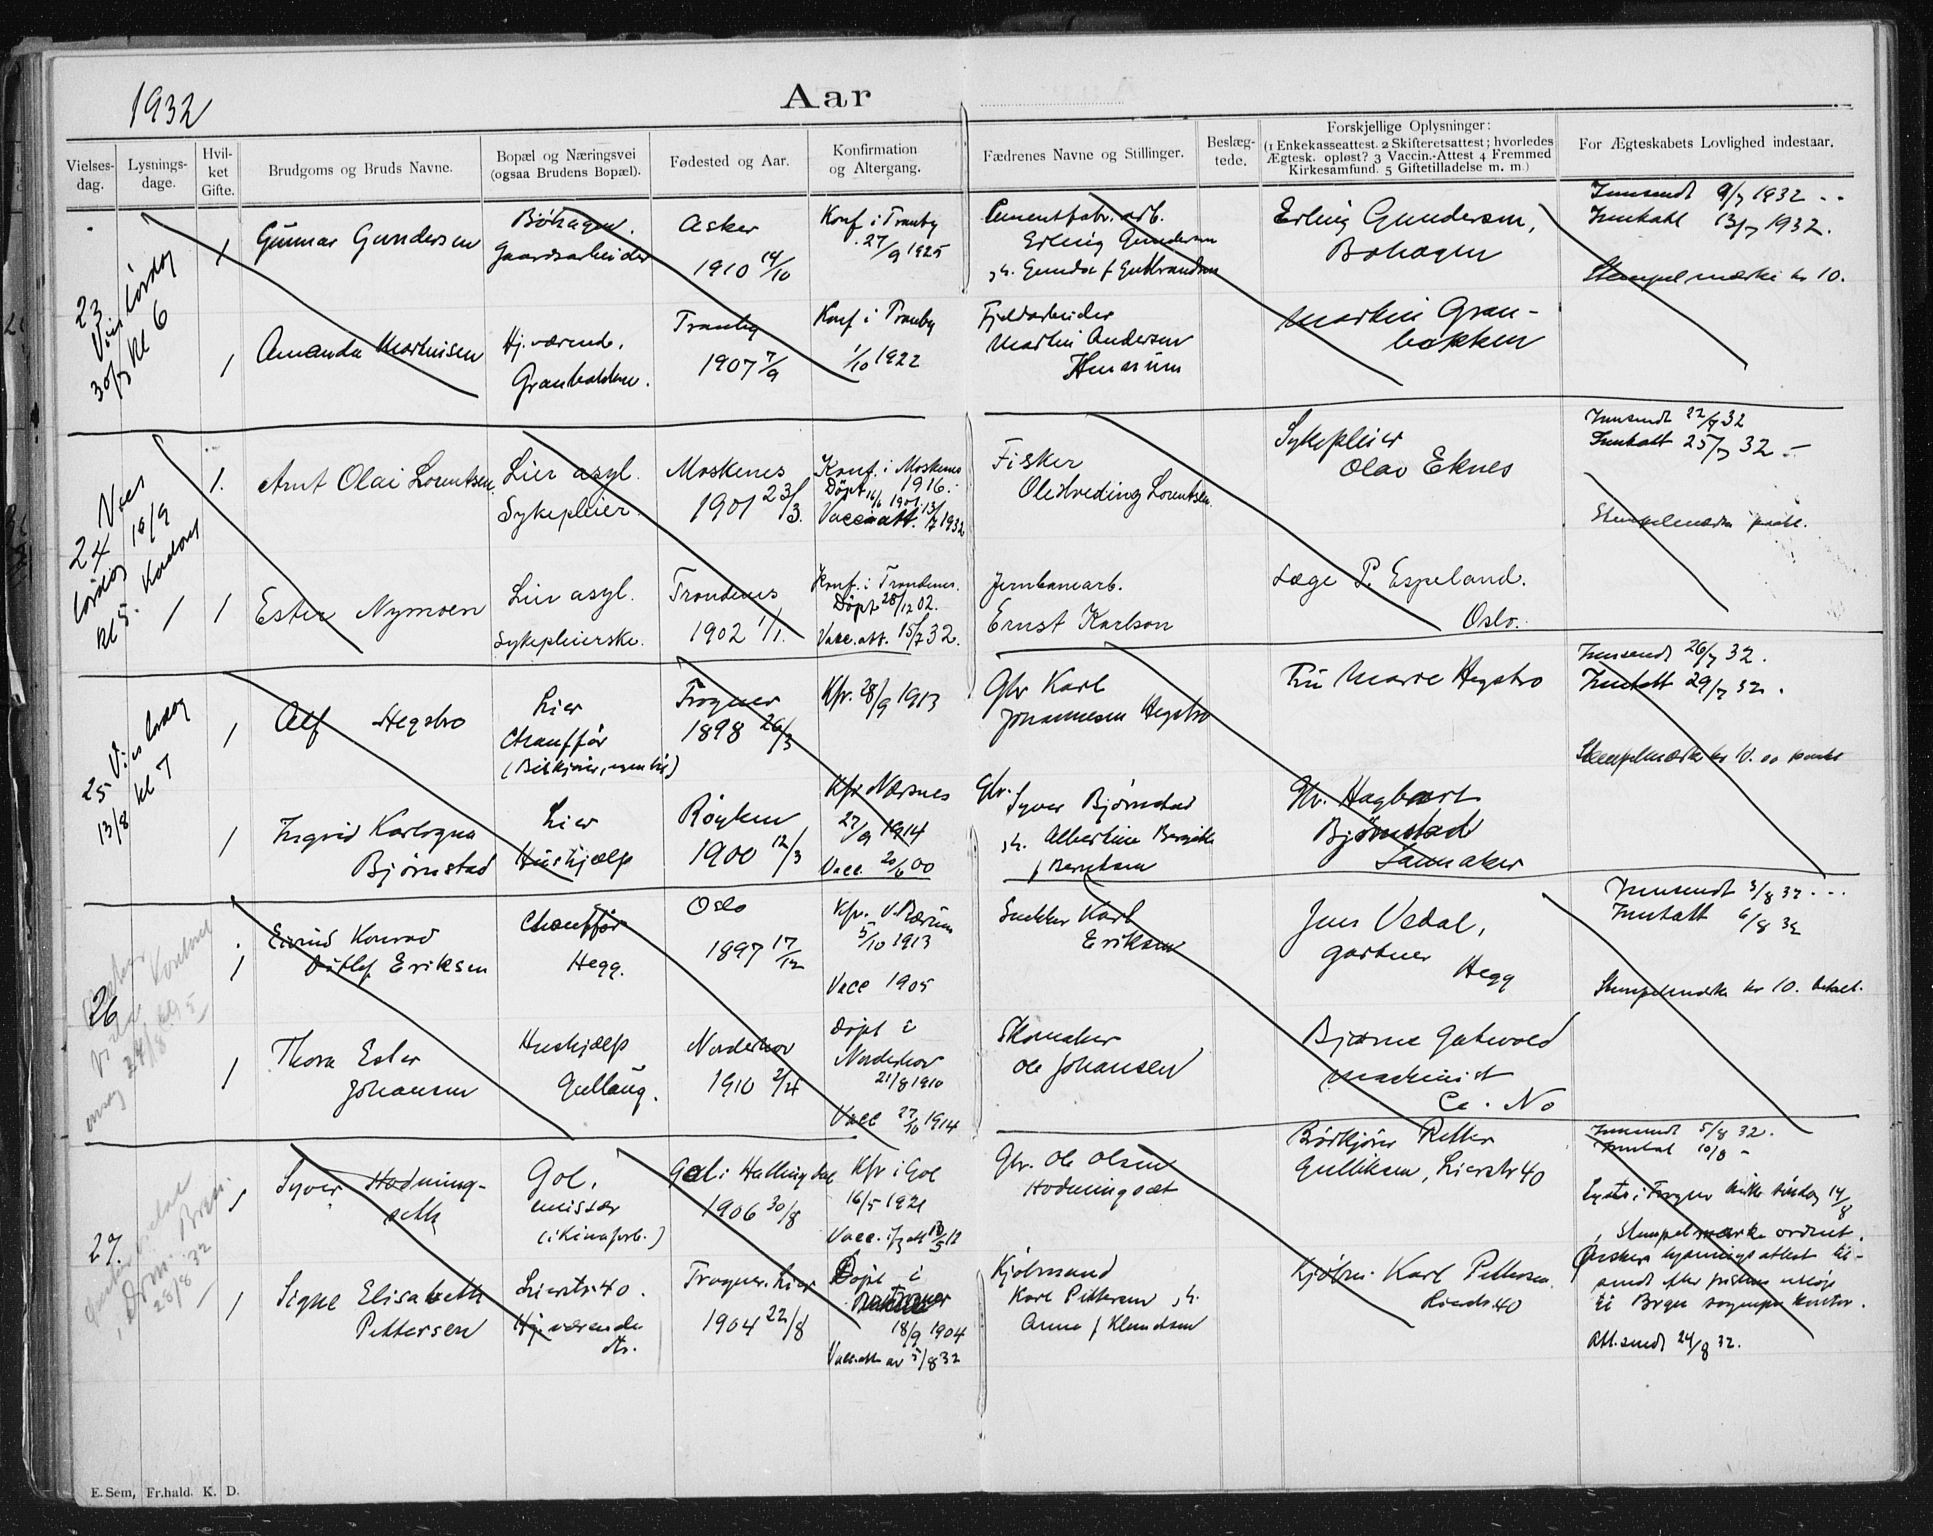 1932
Aar
Vielses-
dag.
Lysnings-
dage.
Hvil-
ket
Gifte.
Brudgoms og Bruds Navne.
Bopæl og Næringsvei
(ogsaa Brudens Bopæl).
Fødested og Aar.
Konfirmation
og Altergang.
Fædrenes Navne og Stillinger.
Beslæg-
tede.
Forskjellige Oplysninger:
(1 Enkekasseattest. 2 Skifteretsattest; hvorledes
Ægtesk. opløst? 3 Vaccin.-Attest 4 Fremmed
Kirkesamfund. 5 Giftetilladelse m. m.)
For Ægteskabets Lovlighed indestaar.
23
Vies lørdag
30/7 kl 6
1
Gunnar Gundersen
Bøhagen.
gaardsarbeider
Asker
1910 14/10
Konf i Tranby
27/9 1925
Cementfabr. arb.
Erling Gundersen
Erling Gundersen,
Bøhagen
Innsendt 9/7 1932
Inntatt 13/7 1932.
Stempelmærke kr 10.
1
Amanda Martinsen
Hj.værende.
Granbakken.
Tranby
1907 7/9
Konf i Tranby
1/10 1922
Fjeldarbeider
Martin Andersen
Martin Gran-
bakken
24 Vies
lørdag 10/9
kl 5. Kontoret
1.
Arnt Olai Lorentsen
Lier asyl.
Sykepleier.
Moskenes
1901 23/3.
Konf. i Moskenes
1916.
Døpt 16/6 1901.
Vaccinatt. 13/7 1932
Fisker
Ole Hveding Lorentsen
Sykepleier
Olav Eknes
Innsendt 22/7 32
Inntatt 25/7 32
Stempelmærke
1
Ester Nymoen
Lier asyl.
Sykepleierske.
Trondenes
1902 1/1.
Konf. i Trondenes.
Døpt 28/12 02.
Vacc. att. 15/7 32.
Jernbanearb.
Ernst Karlson
Læge P. Espeland.
Oslo.
25 Vies lørdag
13/8 kl 7
1
Alf Hegsbro
Lier
Chauffør
Frogner
1898 26/3
Kfr. 28/9 1913
Gbr Karl
Johannesen Hegsbro
Fru Marie Hegsbro
Innsendt 26/7 32.
Inntatt 29/7 32.
Stempelmærke kr 10.00
1
Ingrid Karlogna
Bjørnstad
Lier
Hushjælp
Røyken
1900 12/3
Kfr. Nærsnes
27/9 1914
Vacc. 20/6 00
Gbr.
Syver Bjørnstad
f Berntsen
Gbr. Hagbart
Bjørnstad
26
24/8 kl 5
1
Eivind Konrad
Ditlef Eriksen
Chauffør
Hegg.
Oslo
1897 17/12
Kfr. V. Bærum
5/10 1913
Vacc 1905
Snekker Karl
Eriksen
Jens Vedal,
gartner
Hegg
Innsendt 3/8 32
Inntatt 6/8 32
Stempelmærke kr 10. betalt.
1
Thora Ester
Johansen
Hushjælp
Gullaug.
Norderhov
1910 2/4
Døpt i
Norderhov
21/8 1910
Vacc 27/10 1914
Skomaker
Ole Johansen
Bjarne Gatevold
maskinist
27.
28/8 32
1
Syver Hodning-
seth
Gol,
emissær
(i Kinaforb.)
Gol i Hallingdal
1906 30/8
Kfr i Gol
16/5 1921
Gbr. Ole Olsen
Hodningset
Petter
Gulliksen, Lierstr 40
Innsendt 5/8 32.
Inntat 10/8
Stempelmærke ordnet.
1
Signe Elisabeth
Pettersen
Lierstr 40.
Hj.værende
dtr.
Frogner, Lier
1904 22/8
Døpt i
Frogner
18/9 1904
Vacc.att av 5/8 32
Kjøbmand
Karl Pettersen
Anna f Klemetsen
Kjøbm. Karl Pettersen
Att. sendt 24/8 32.
E. Sem, Fr.hald. K. D.